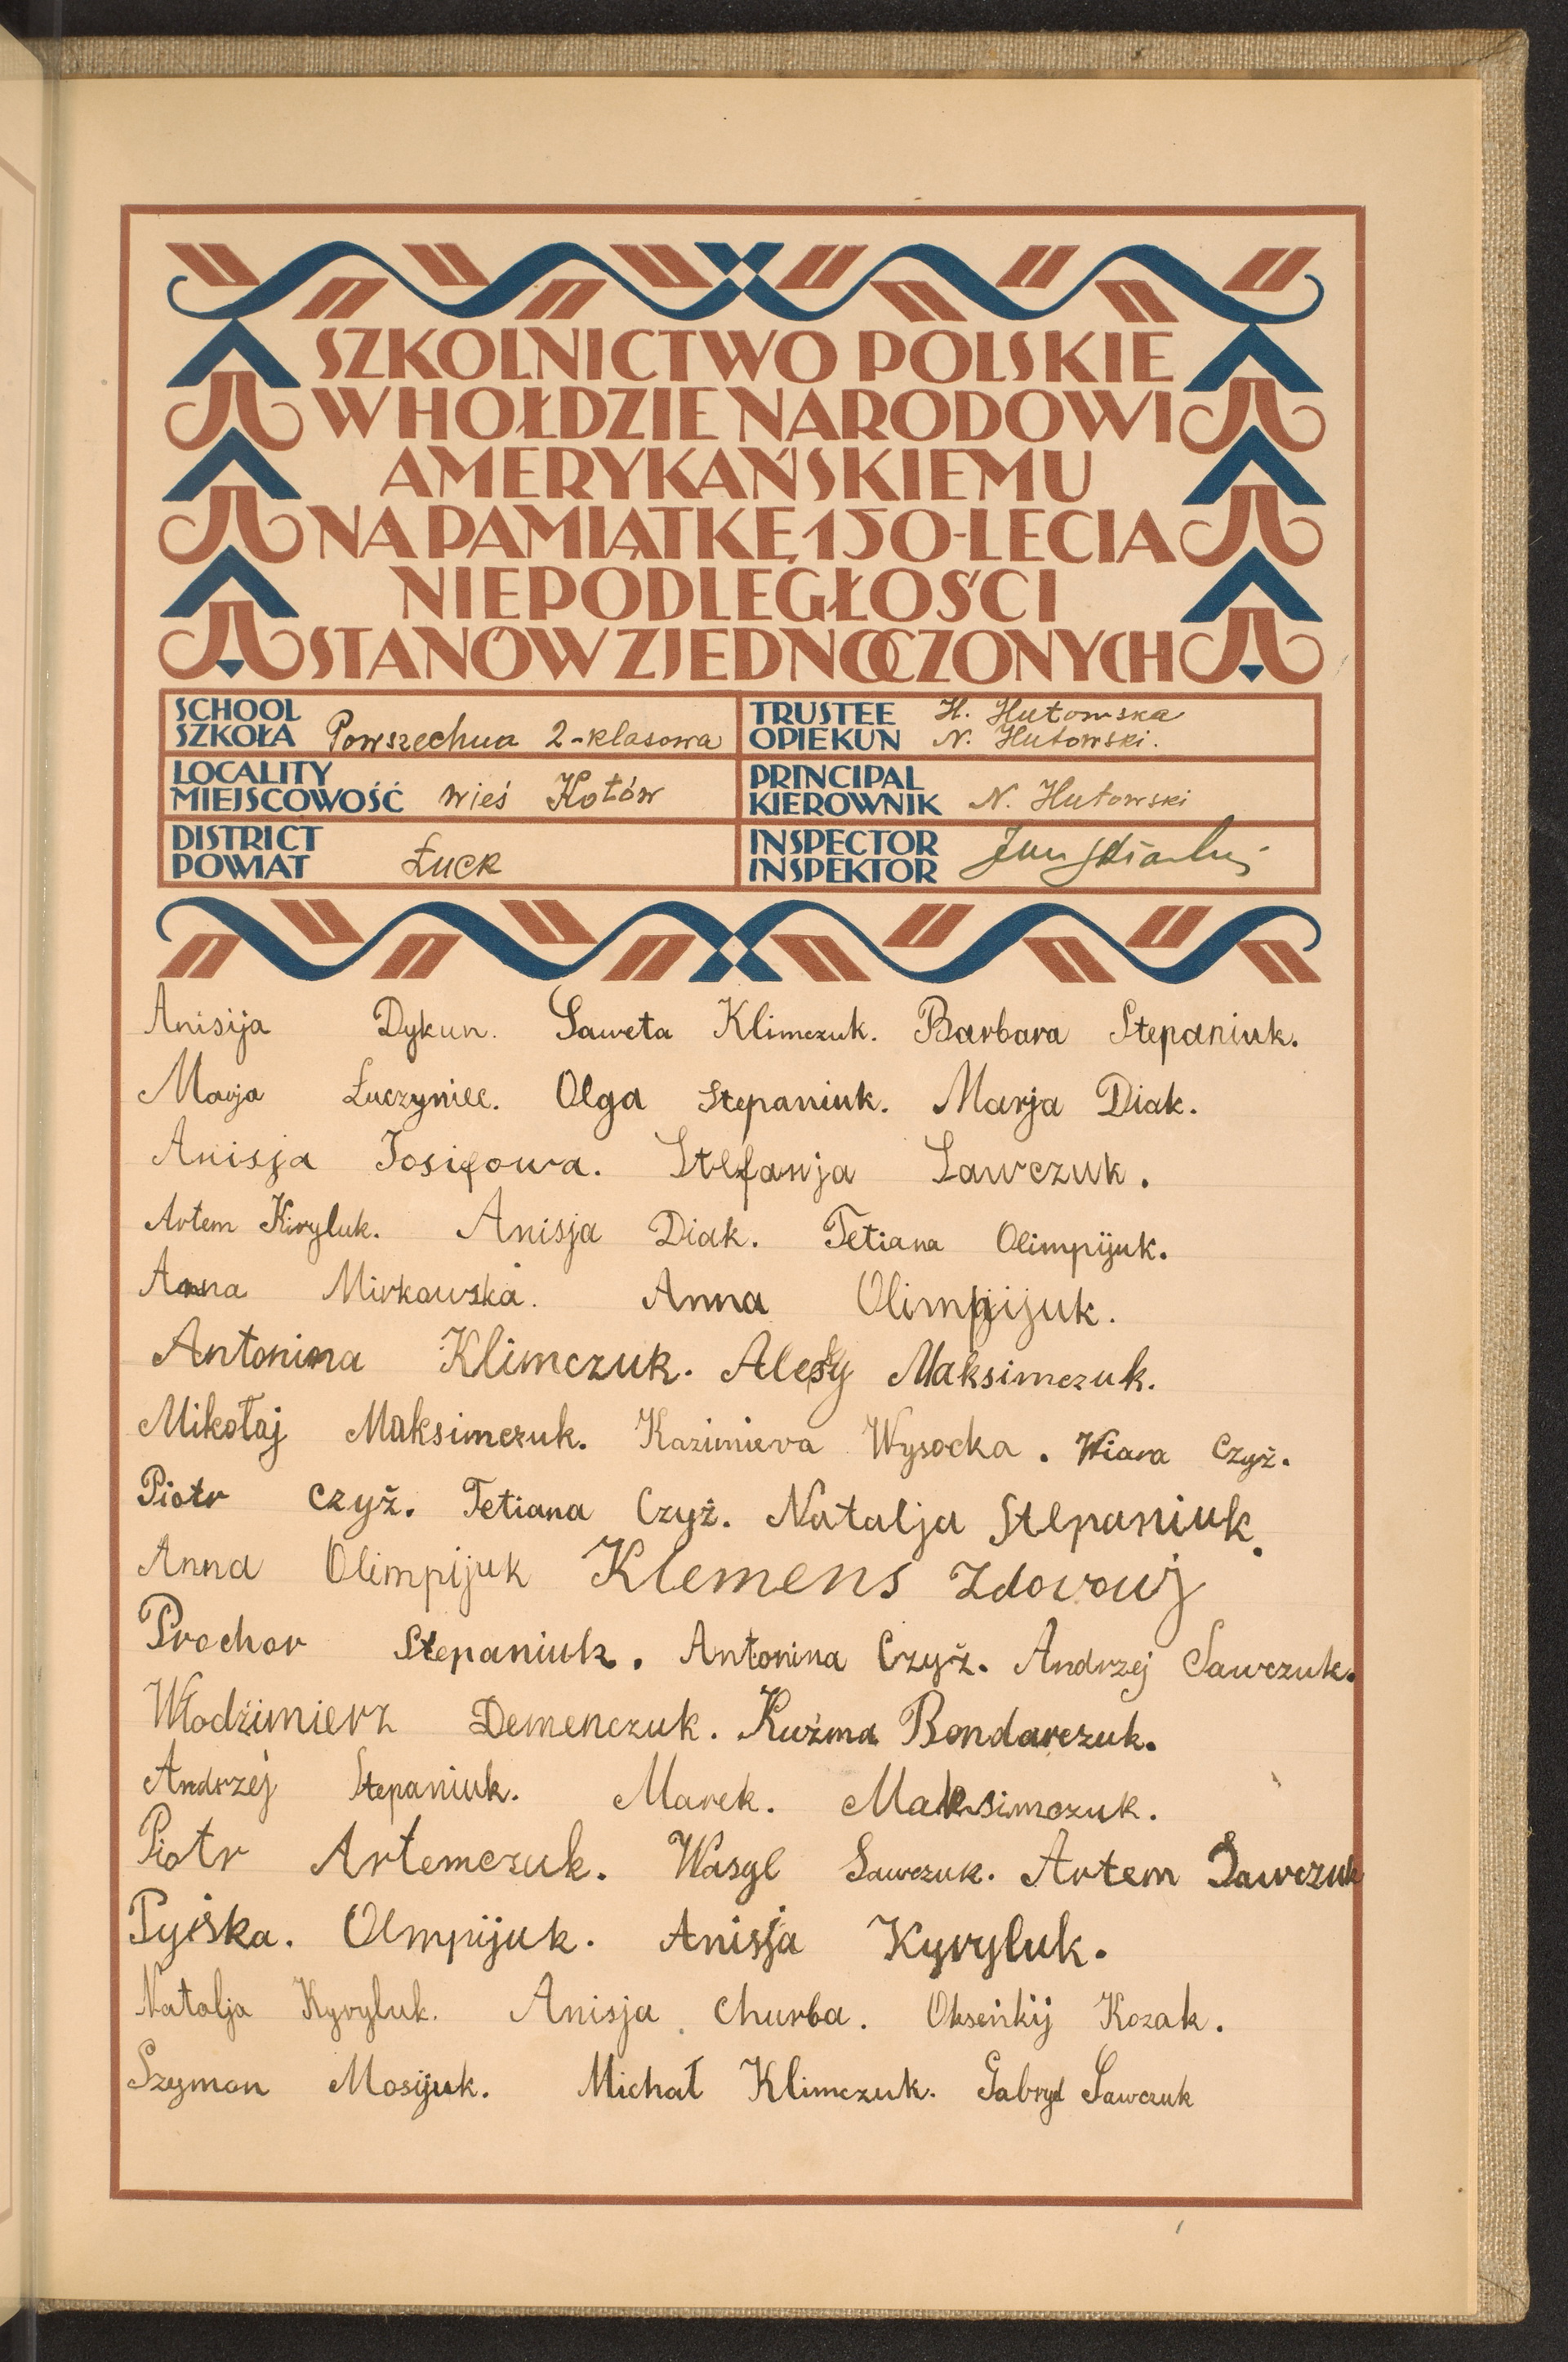 SZKOLNICTWO POLSKIE
W HOŁDZIE NARODOWI
AMERYKAŃSKIEMU
NA PAMIĄTKĘ 150-LECIA
NIEPODLEGŁOŚCI
STANÓW ZJEDNOCZONYCH
SCHOOL
SZKOŁA Powszechna 2-klasowa
TRUSTEE H. Hutowska
OPIEKUN N. Hutowski.
LOCALITY
MIEJSCOWOŚĆ wieś Kotów
PRINCIPAL
KIEROWNIK N. Hutowski
DISTRICT
POWIAT Łuck
INSPECTOR
INSPEKTOR
Anisija Dykun. Saweta Klimczuk. Barbara Stepaniuk.
Marja Łuczyniec. Olga Stepaniuk. Marja Diak.
Anisja Josifowa. Stefanja Sawczuk.
Artem Kiryluk. Anisja Diak. Tetiana Olimpijuk.
Anna Mirkowska. Anna Olimpijuk.
Antonina Klimczuk. Maksimczuk.
Mikołaj Maksimczuk. Kazimiera Wysocka. Wiara Czyż.
Piotr Czyż. Tetiana Czyż. Natalja Stepaniuk.
Anna Olimpijuk Klemens Zdorowj
Prochor Stepaniuk. Antonina Czyż. Andrzej Sawczuk.
Włodzimierz Demenczuk. Kuźma Bondarczuk.
Andrzej Stepaniuk. Marek. Maksimczuk.
Piotr Artemczuk. Wasyl Sawczuk. Artem Sawczuk
Pyiska. Olmpijuk. Anisja Kyryluk.
Natalja Kyryluk. Anisja Churba. Oksenkij Kozak.
Szymon Mosijuk. Michał Klimczuk. Gabryl Sawczuk